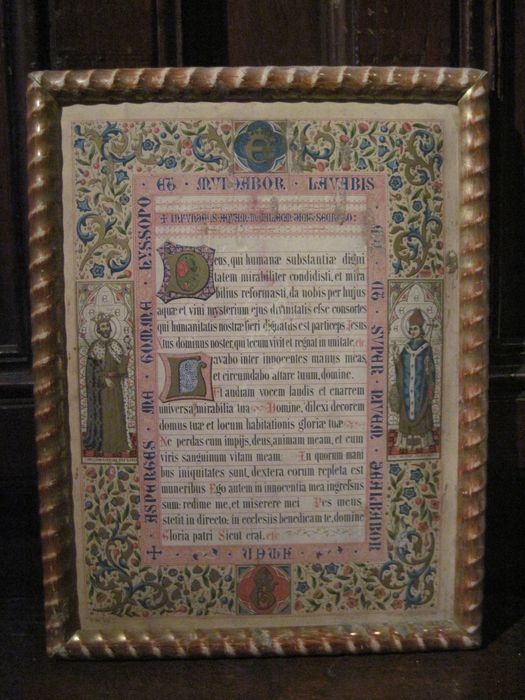 ASPERGES ME DOMINE HYSSOPO
ET MUNDABOR LAVABIS
ME ET SUPER NIVEM DEALBABOR
AMEN
Deus, qui humanæ substantiæ digni
tatem mirabiliter condidisti, et mira
bilius reformasti, da nobis per hujus
aquæ et vini mysterium ejus divinitatis esse consortes
qui humanitatis nostræ fieri dignatus est particeps Jesus
tus dominus noster, qui tecum vivit et regnat in unitate, etc
Lavabo inter innocentes manus meas
et circumdabo altare tuum, domine.
Ut audiam vocem laudis et enarrem
universa mirabilia tua Domine, dilexi decorem
domus tuæ et locum habitationis gloriæ tuæ
Ne perdas cum impijs, deus, animam meam, et cum
viris sanguinum vitam meam: In quorum mani
bus iniquitates sunt, dextera eorum repleta est
muneribus Ego autem in innocentia mea ingressus
sum: redime me, et miserere mei Pes meus
stetit in directo: in ecclesiis benedicam te, domine
Gloria patri Sicut erat. etc